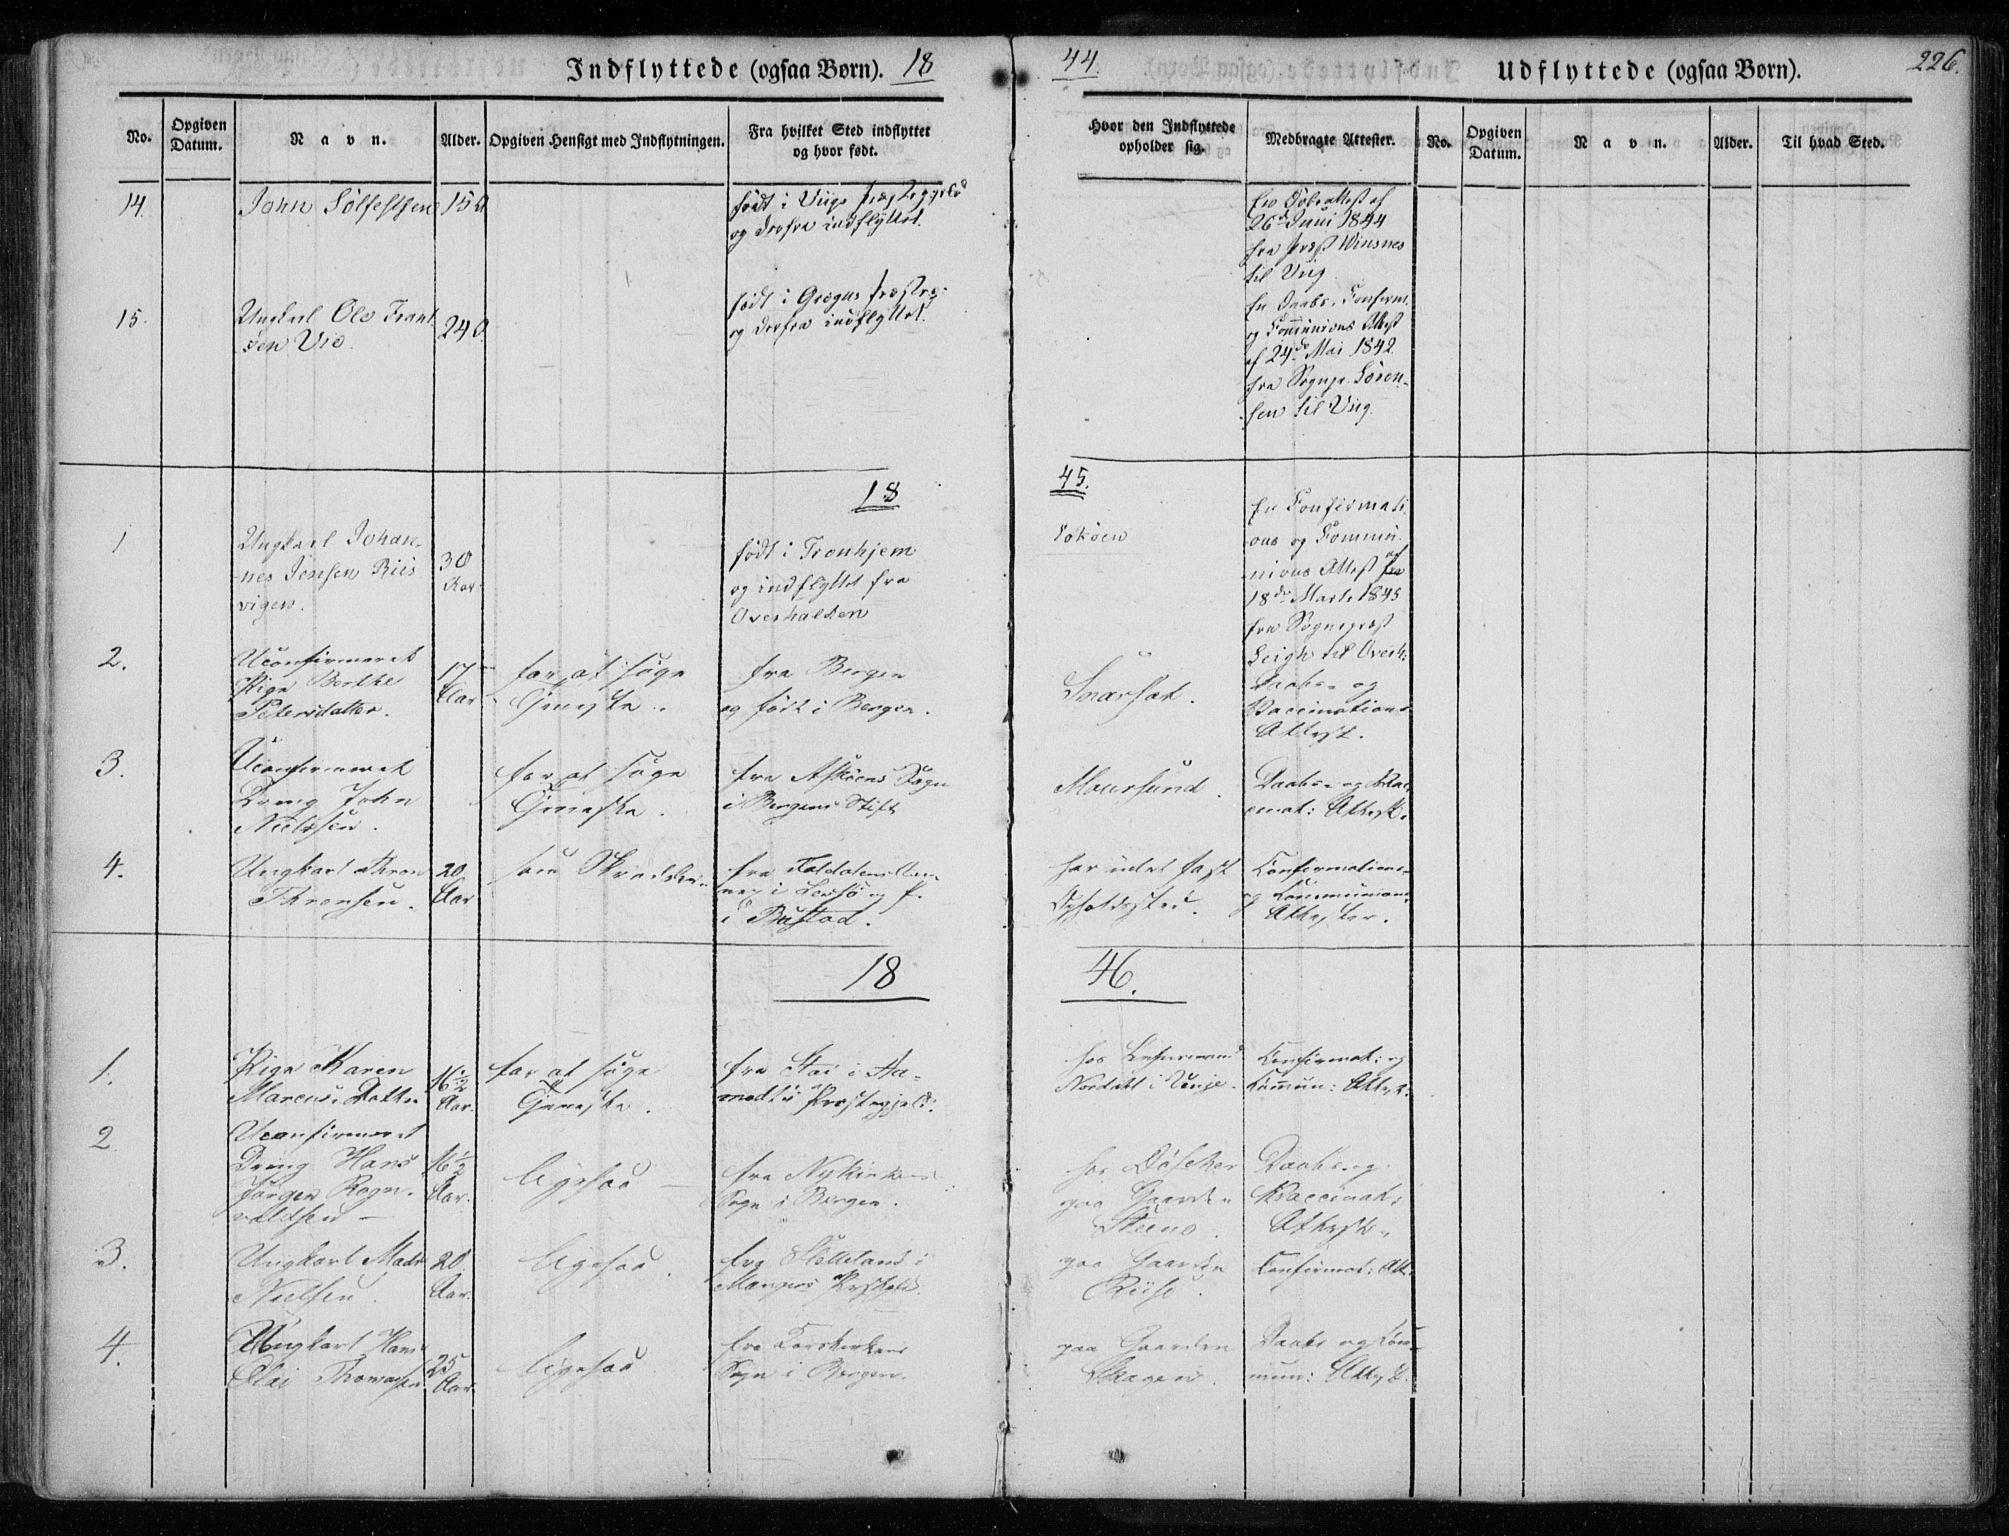 Indflyttede (ogsaa Børn). 18
44.
Udflyttede (ogsaa Børn).
226.
No.
Opgiven
Datum.
Navn.
Alder.
Opgiven Hensigt med Indflytningen.
Fra hvilket Sted indflyttet
og hvor født.
Hvor den Indflyttede
opholder sig.
Medbragte Attester.
No.
Opgiven
Datum.
Navn.
Alder.
Til hvad Sted.
14.
John Sölfestsen
født i Viigs Præstegjeld
og derfra indflyttet.
En Døbeattest af
26de Juni 1844
fra Præst Winsnes
til Viig.
15.
Ungkarl Ole
sen
født i
og derfra indflyttet.
En Daabs, Confirm.
og Communions Attest
af 24de Mai 1842
fra Sognepr. Sören-
sen til Viig.
18
45.
1
Ungkarl Johan-
nes Jensen Riis
vigen.
30
Aar
født i Tronhjem
og indflyttet fra
Overhalden
En Confirmati
ons og Commu
nions Attest af
18de Marts 1845
fra Sognepræst
til Overh:
2.
Uconfirmeret
Pige Berthe
Petersdatter.
17
Aar
for at søge
Tjeneste.
fra Bergen
og født i Bergen.
Daabs- og
Vaccinations
Attest.
3.
Uconfirmeret
Dreng John
Nielsen.
for at søge
Tjeneste.
fra Askøens Sogn
i Bergens Stift
Maursund.
Daabs- og Vac
cinat: Attest.
4.
Ungkarl Thron
Thronsen.
20
Aar
som Skrædder
fra
i
i
har intet fast
Opholdssted.
Confirmations-
og Communions
Attester.
18
46.
1.
Pige Karen
Marcus Datter
16 1/2
Aar.
for at søge
Tjeneste.
fra
Præstegjeld.
hos Lehnsmand
Confirmat: og
Commun: Attest.
2
Uconfirmeret
Dreng Hans
Jörgen Rogn-
valdsen
16 1/2
Aar.
ligesaa
fra Nykirkens
Sogn i Bergen.
hos
paa Gaarden
Daabs- og
Vaccinat:
Attest.
3.
Ungkarl Mads
Nielsen.
20
Aar.
ligesaa.
fra
i
Mangers
paa Gaarden
Confirmat: Att.
4.
Ungkarl Hans
Thomassen
25
Aar.
ligesaa.
fra Korskirkens
Sogn i Bergen.
paa Gaarden
Skagen.
Daabs og Com
mun: Attest.